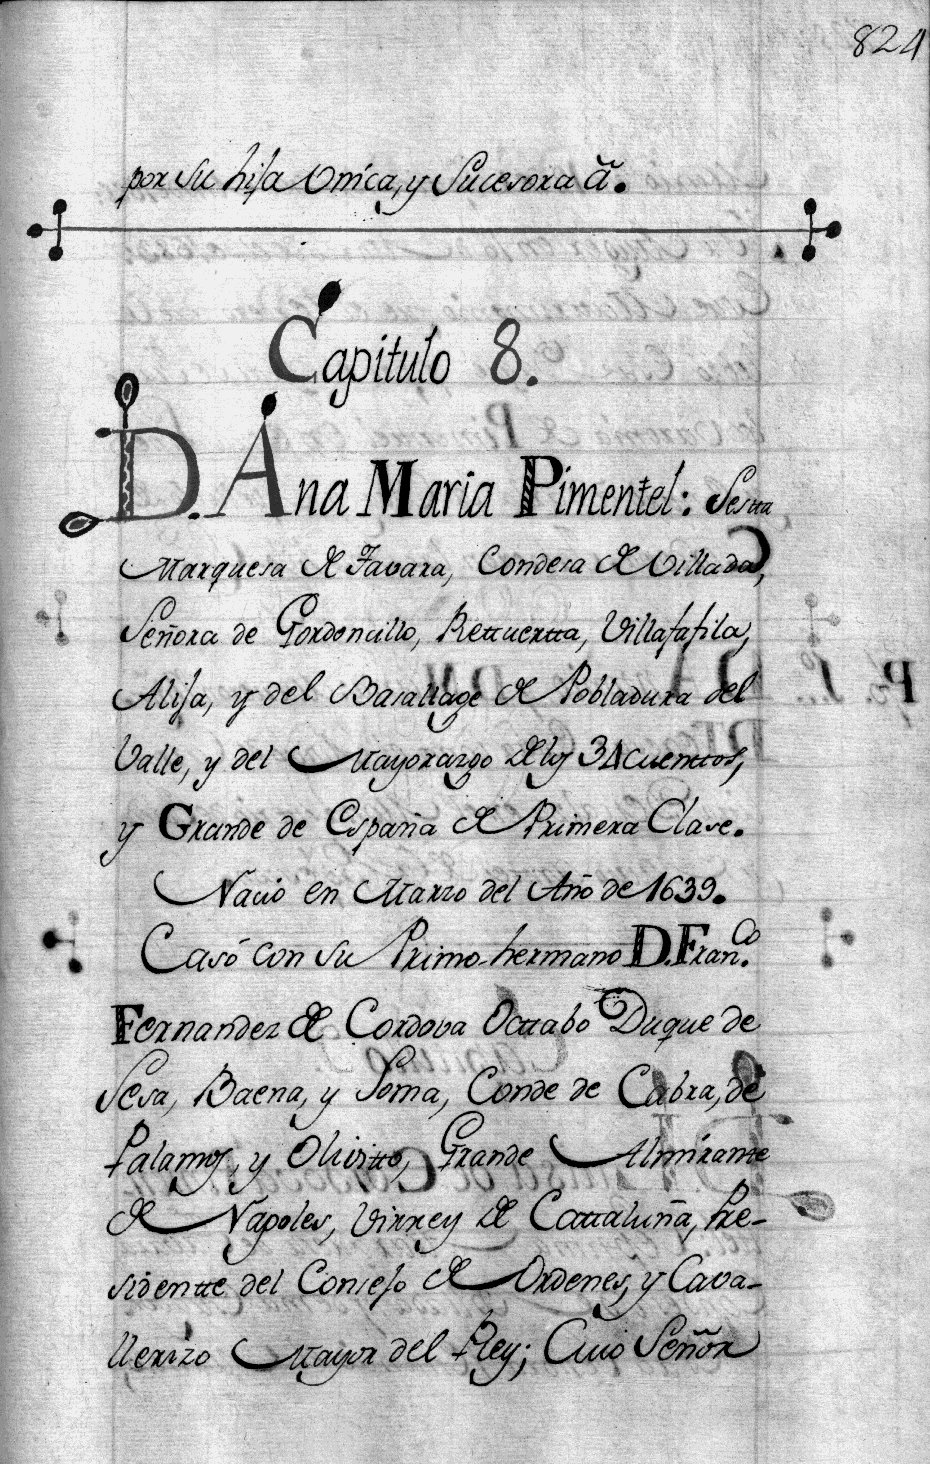 824
por su hija Unica, y Sucesora ã.
Capitulo 8.
D. Ana Maria Pimentel: Sestta
Marquesa de Tavara, Condesa de Villada,
Señora de Gordoncillo, Rettuertta, Villafafila,
Alija, y del Basallage de Pobladura del
Valle, y del Mayorazgo de los 34 cuenttos,
y Grande de España de Primera Clase.
Nacio en Marzo del Año de 1639.
Casó con su Primo-hermano D. Fran.co
Fernandez de Cordova Octtabo Duque de
Sesa, Baena, y Soma, Conde de Cabra, de
Palamos, y Olivitto, Grande Almirante
de Napoles, Virrey de Cattaluña, Pre-
sidentte del Consejo de Ordenes, y Cava-
llerizo Mayor del Rey; Cuio Señor